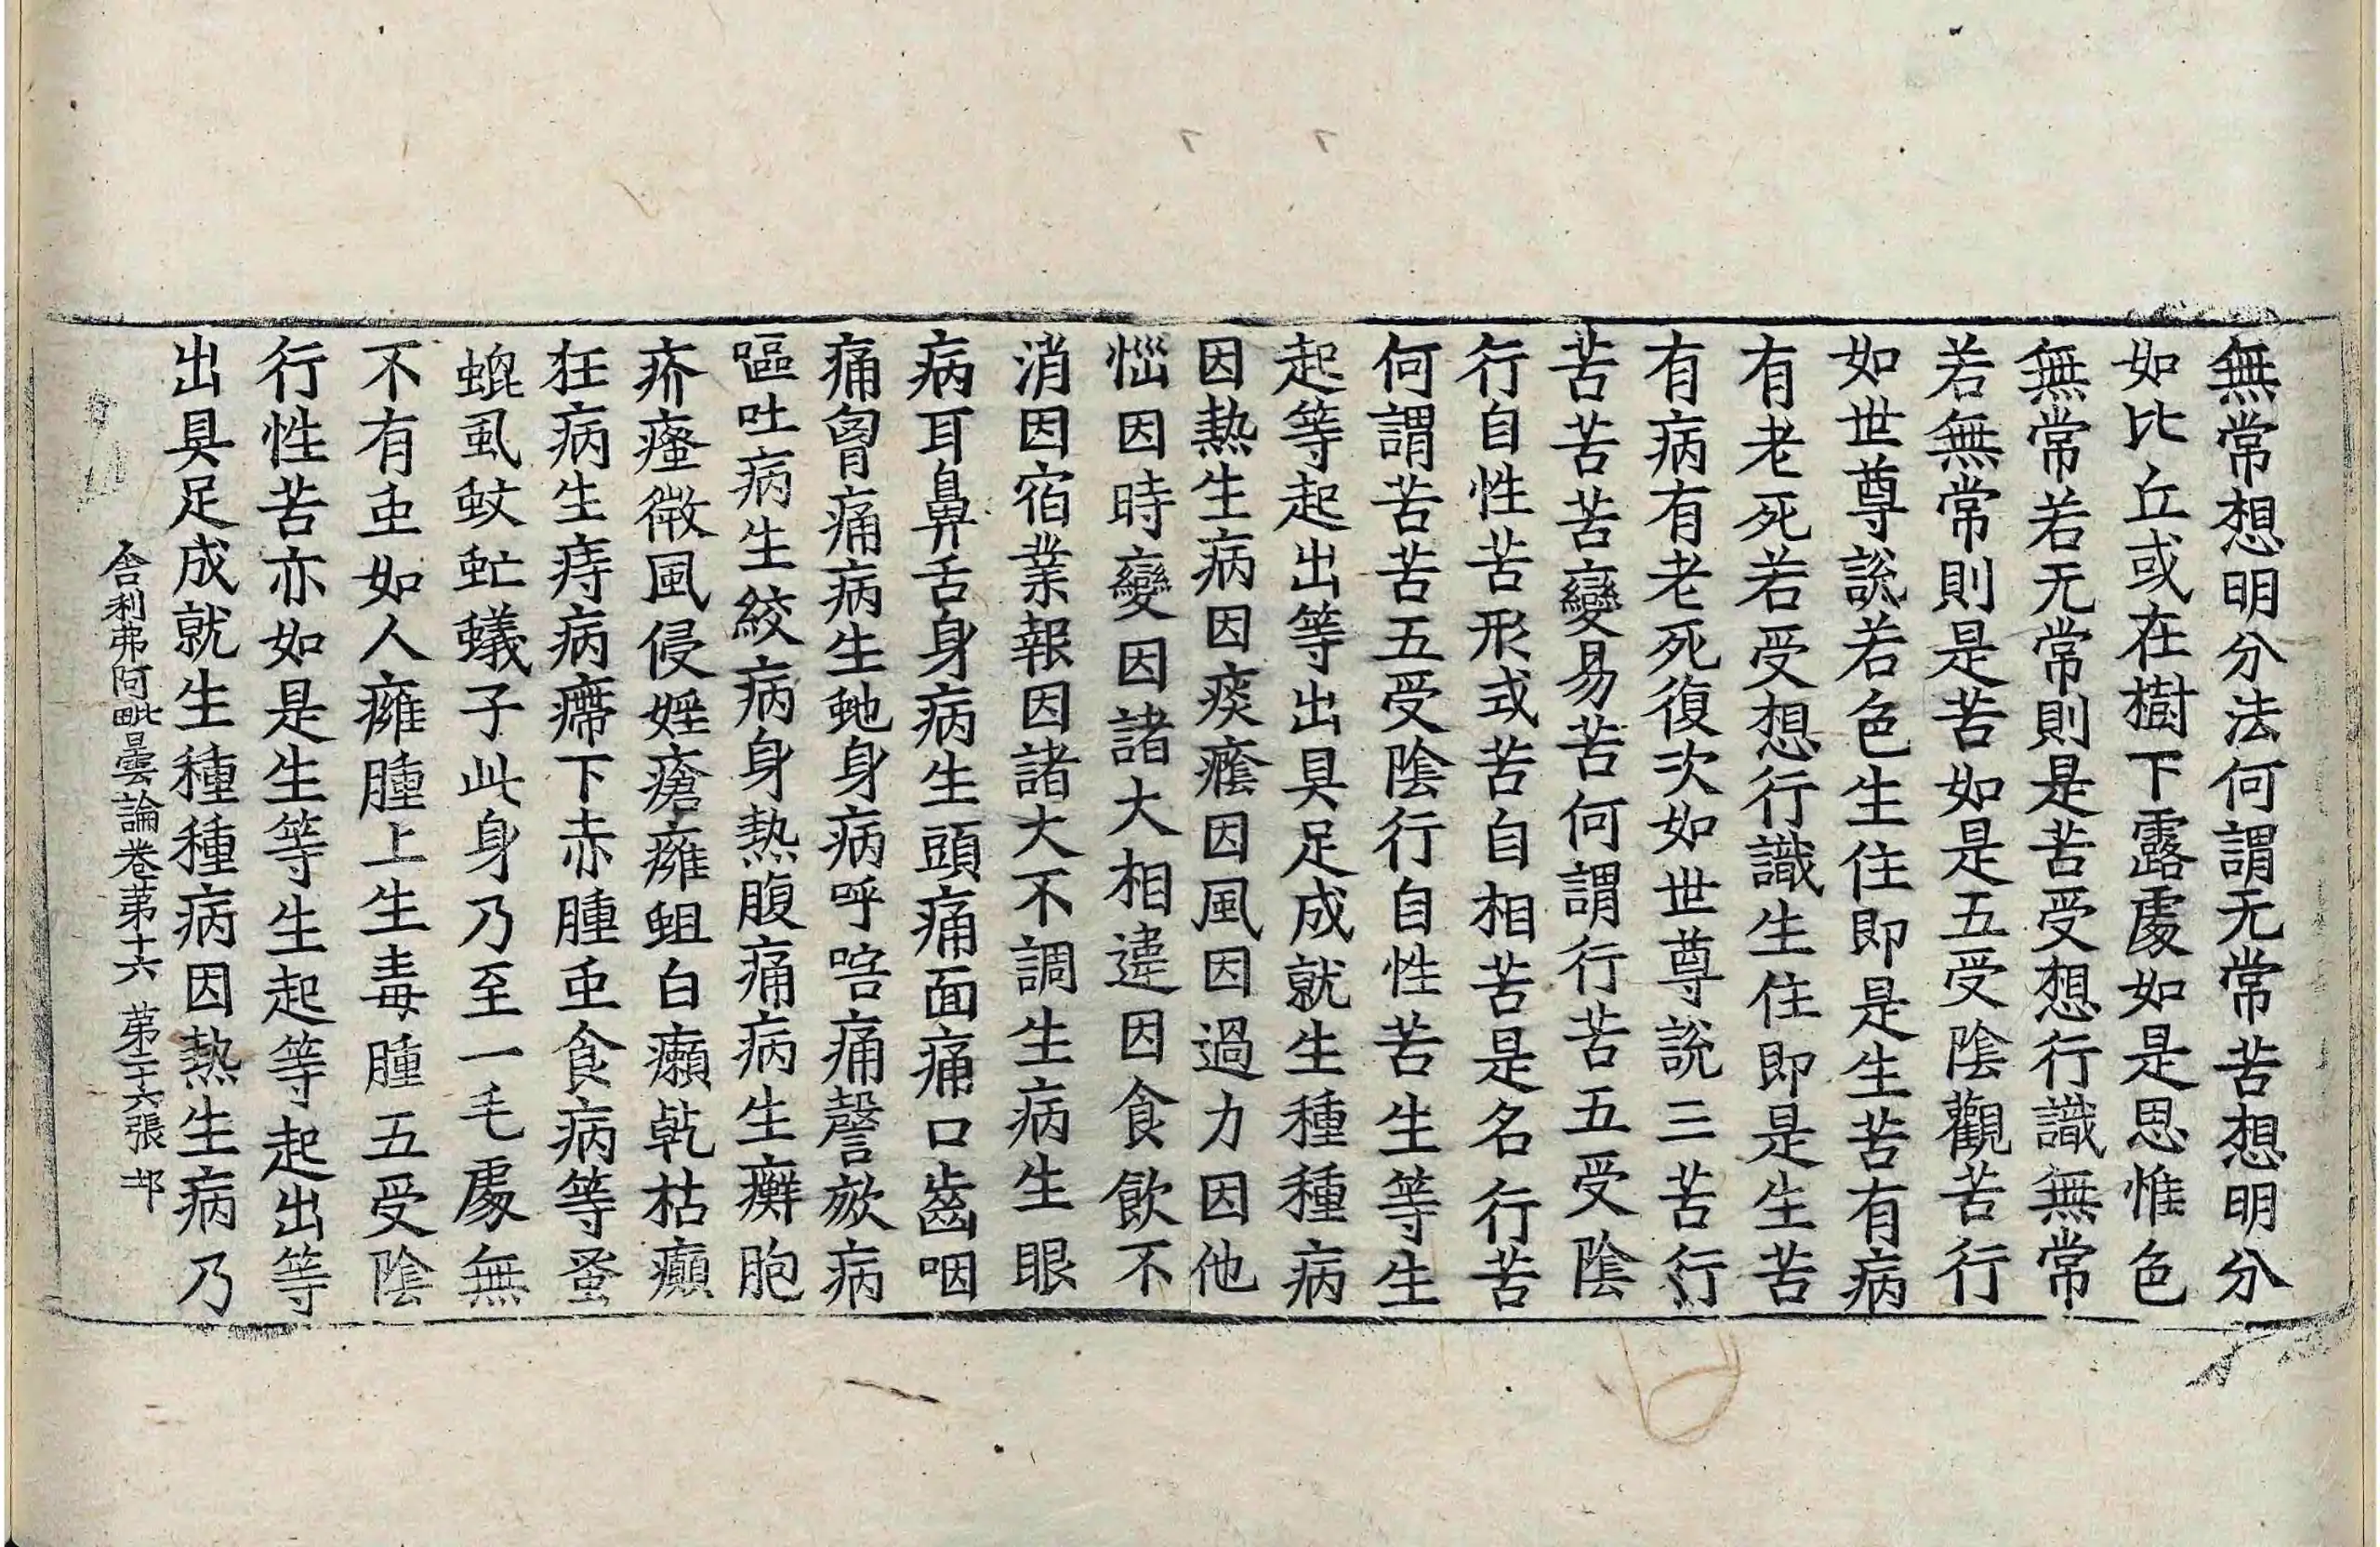 無常想明分法何謂无常苦想明分
如比丘或在樹下露處如是思惟色
無常若无常則是苦受想行識無常
若無常則是苦如是五受陰觀苦行
如世尊說若色生住即是生苦有病
有老死若受想行識生住即是生苦
有病有老死復次如世尊說三苦行
苦苦苦變易苦何謂行苦五受陰
行自性苦形或苦自相苦是名行苦
何謂苦苦五受陰行自性苦生等生
起等起出等出具足成就生種種病
因熱生病因痰癊因風因過力因他
惱因時變因諸大相違因食飲不
消因宿業報因諸大不調生病生眼
病耳鼻舌身病生頭痛面痛口齒咽
痛胷痛病生虵身病呼㖧痛謦欬病
嘔吐病生絞病身熱腹痛病生癬胞
疥瘙微風侵婬瘡癰蛆白癩乾枯癲
狂病生痔病㿃下赤腫虫食病等蚤
蜫虱蚊虻蟻子此身乃至一毛處無
不有虫如人癰腫上生毒腫五受陰
行性苦亦如是生等生起等起出等
出具足成就生種種病因熱生病乃
舍利弗阿毗曇論卷苐十六 苐二十六張 邶